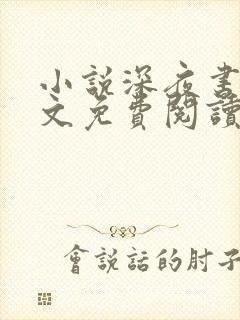 小説深夜書
文免費閱讀
會說話的肘子